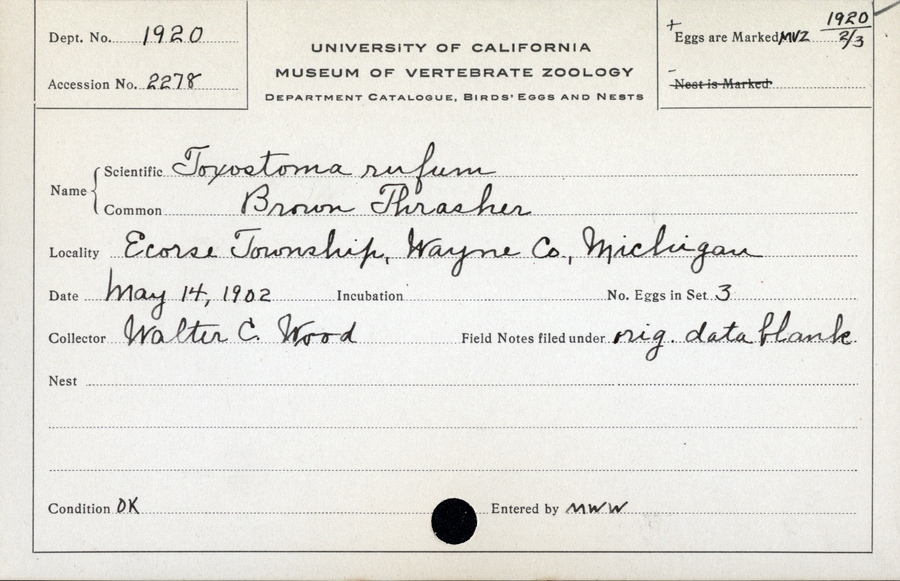 Dept. No. 1920
Accession No. 2278
UNIVERSITY OF CALIFORNIA
MUSEUM OF VERTEBRATE ZOOLOGY
DEPARTMENT CATALOGUE, BIRDS' EGGS AND NESTS
+ Eggs are Marked MVZ 1920 2/3
- Nest is Marked
Name
Scientific Toxostoma rufum
Common Brown Thrasher
Locality Ecorse Township, Wayne Co., Michigan
Date May 14, 1902 Incubation No. Eggs in Set 3
Collector Walter C. Wood Field Notes filed under orig. data blank
Nest
Condition OK Entered by MWW